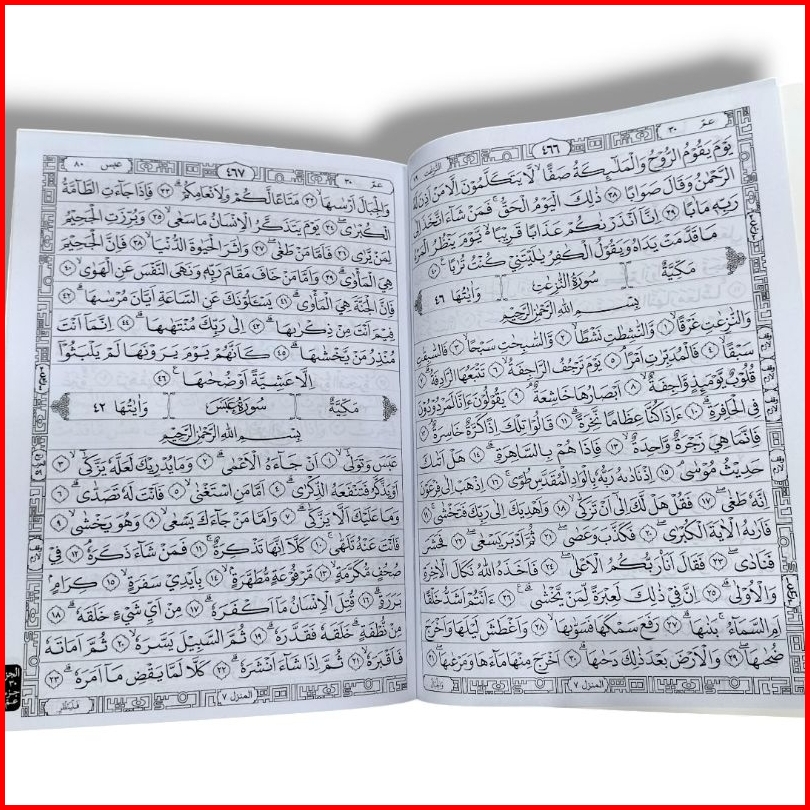 عم ٣٠ ٤٦٦ النزعت ٧٩
يَوْمَ يَقُوْمُ الرُّوْحُ وَالْمَلٰٓئِكَةُ صَفًّا ۙ لَّا يَتَكَلَّمُوْنَ اِلَّا مَنْ اَذِنَ لَهُ
الرَّحْمٰنُ وَقَالَ صَوَابًا ٣٨ ذٰلِكَ الْيَوْمُ الْحَقُّ ۚ فَمَنْ شَآءَ اتَّخَذَ اِلٰى
رَبِّهٖ مَاٰبًا ٣٩ اِنَّآ اَنْذَرْنٰكُمْ عَذَابًا قَرِيْبًا ۚ يَّوْمَ يَنْظُرُ الْمَرْءُ
مَا قَدَّمَتْ يَدٰهُ وَيَقُوْلُ الْكٰفِرُ يٰلَيْتَنِيْ كُنْتُ تُرٰبًا ٤٠
مَكِّيَّةٌ سُوْرَةُ النّٰزِعٰتِ وَاٰيٰتُهَا ٤٦
بِسْمِ اللّٰهِ الرَّحْمٰنِ الرَّحِيْمِ
وَالنّٰزِعٰتِ غَرْقًا ١ وَّالنّٰشِطٰتِ نَشْطًا ٢ وَّالسّٰبِحٰتِ سَبْحًا ٣ فَالسّٰبِقٰتِ
سَبْقًا ٤ فَالْمُدَبِّرٰتِ اَمْرًا ٥ يَوْمَ تَرْجُفُ الرَّاجِفَةُ ٦ تَتْبَعُهَا الرَّادِفَةُ ٧
قُلُوْبٌ يَّوْمَئِذٍ وَّاجِفَةٌ ٨ اَبْصَارُهَا خَاشِعَةٌ ٩ يَقُوْلُوْنَ ءَاِنَّا لَمَرْدُوْدُوْنَ
فِي الْحَافِرَةِ ١٠ ءَاِذَا كُنَّا عِظَامًا نَّخِرَةً ١١ قَالُوْا تِلْكَ اِذًا كَرَّةٌ خَاسِرَةٌ ١٢
فَاِنَّمَا هِيَ زَجْرَةٌ وَّاحِدَةٌ ١٣ فَاِذَا هُمْ بِالسَّاهِرَةِ ١٤ هَلْ اَتٰىكَ
حَدِيْثُ مُوْسٰى ١٥ اِذْ نَادٰىهُ رَبُّهٗ بِالْوَادِ الْمُقَدَّسِ طُوًى ١٦ اِذْهَبْ اِلٰى فِرْعَوْنَ
اِنَّهٗ طَغٰى ١٧ فَقُلْ هَلْ لَّكَ اِلٰٓى اَنْ تَزَكّٰى ١٨ وَاَهْدِيَكَ اِلٰى رَبِّكَ فَتَخْشٰى ١٩
فَاَرٰىهُ الْاٰيَةَ الْكُبْرٰى ٢٠ فَكَذَّبَ وَعَصٰى ٢١ ثُمَّ اَدْبَرَ يَسْعٰى ٢٢ فَحَشَرَ
فَنَادٰى ٢٣ فَقَالَ اَنَا۠ رَبُّكُمُ الْاَعْلٰى ٢٤ فَاَخَذَهُ اللّٰهُ نَكَالَ الْاٰخِرَةِ
وَالْاُوْلٰى ٢٥ اِنَّ فِيْ ذٰلِكَ لَعِبْرَةً لِّمَنْ يَّخْشٰى ٢٦ ءَاَنْتُمْ اَشَدُّ خَلْقًا
اَمِ السَّمَآءُ ۗ بَنٰىهَا ٢٧ رَفَعَ سَمْكَهَا فَسَوّٰىهَا ٢٨ وَاَغْطَشَ لَيْلَهَا وَاَخْرَجَ
ضُحٰىهَا ٢٩ وَالْاَرْضَ بَعْدَ ذٰلِكَ دَحٰىهَا ٣٠ اَخْرَجَ مِنْهَا مَآءَهَا وَمَرْعٰىهَا ٣١
المنزل ٧
عبس ٨٠ ٤٦٧ عم ٣٠
وَالْجِبَالَ اَرْسٰىهَا ٣٢ مَتَاعًا لَّكُمْ وَلِاَنْعَامِكُمْ ٣٣ فَاِذَا جَآءَتِ الطَّآمَّةُ
الْكُبْرٰى ٣٤ يَوْمَ يَتَذَكَّرُ الْاِنْسَانُ مَا سَعٰى ٣٥ وَبُرِّزَتِ الْجَحِيْمُ
لِمَنْ يَّرٰى ٣٦ فَاَمَّا مَنْ طَغٰى ٣٧ وَاٰثَرَ الْحَيٰوةَ الدُّنْيَا ٣٨ فَاِنَّ الْجَحِيْمَ
هِيَ الْمَأْوٰى ٣٩ وَاَمَّا مَنْ خَافَ مَقَامَ رَبِّهٖ وَنَهَى النَّفْسَ عَنِ الْهَوٰى ٤٠
فَاِنَّ الْجَنَّةَ هِيَ الْمَأْوٰى ٤١ يَسْـَٔلُوْنَكَ عَنِ السَّاعَةِ اَيَّانَ مُرْسٰىهَا ٤٢
فِيْمَ اَنْتَ مِنْ ذِكْرٰىهَا ٤٣ اِلٰى رَبِّكَ مُنْتَهٰىهَا ٤٤ اِنَّمَآ اَنْتَ
مُنْذِرُ مَنْ يَّخْشٰىهَا ٤٥ كَاَنَّهُمْ يَوْمَ يَرَوْنَهَا لَمْ يَلْبَثُوْٓا
اِلَّا عَشِيَّةً اَوْ ضُحٰىهَا ٤٦
مَكِّيَّةٌ سُوْرَةُ عَبَسَ وَاٰيٰتُهَا ٤٢
بِسْمِ اللّٰهِ الرَّحْمٰنِ الرَّحِيْمِ
عَبَسَ وَتَوَلّٰٓى ١ اَنْ جَآءَهُ الْاَعْمٰى ٢ وَمَا يُدْرِيْكَ لَعَلَّهٗ يَزَّكّٰٓى ٣
اَوْ يَذَّكَّرُ فَتَنْفَعَهُ الذِّكْرٰى ٤ اَمَّا مَنِ اسْتَغْنٰى ٥ فَاَنْتَ لَهٗ تَصَدّٰى ٦
وَمَا عَلَيْكَ اَلَّا يَزَّكّٰى ٧ وَاَمَّا مَنْ جَآءَكَ يَسْعٰى ٨ وَهُوَ يَخْشٰى ٩
فَاَنْتَ عَنْهُ تَلَهّٰى ١٠ كَلَّآ اِنَّهَا تَذْكِرَةٌ ١١ فَمَنْ شَآءَ ذَكَرَهٗ ١٢ فِيْ
صُحُفٍ مُّكَرَّمَةٍ ١٣ مَّرْفُوْعَةٍ مُّطَهَّرَةٍ ١٤ بِاَيْدِيْ سَفَرَةٍ ١٥ كِرَامٍ
بَرَرَةٍ ١٦ قُتِلَ الْاِنْسَانُ مَآ اَكْفَرَهٗ ١٧ مِنْ اَيِّ شَيْءٍ خَلَقَهٗ ١٨
مِنْ نُّطْفَةٍ ۗ خَلَقَهٗ فَقَدَّرَهٗ ١٩ ثُمَّ السَّبِيْلَ يَسَّرَهٗ ٢٠ ثُمَّ اَمَاتَهٗ
فَاَقْبَرَهٗ ٢١ ثُمَّ اِذَا شَآءَ اَنْشَرَهٗ ٢٢ كَلَّا لَمَّا يَقْضِ مَآ اَمَرَهٗ ٢٣
المنزل ٧